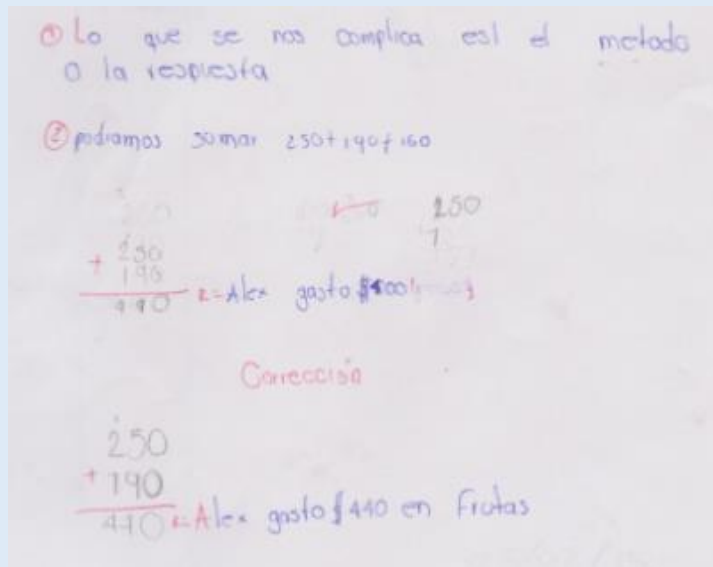 ① Lo que se nos complica esl el metodo
o la respiesta
② podriamos somar 250+190+160
250
+ 250
190
440 R=Alex gasto $
Correccion
250
+ 190
440 R=Alex gasto $440 en frutas